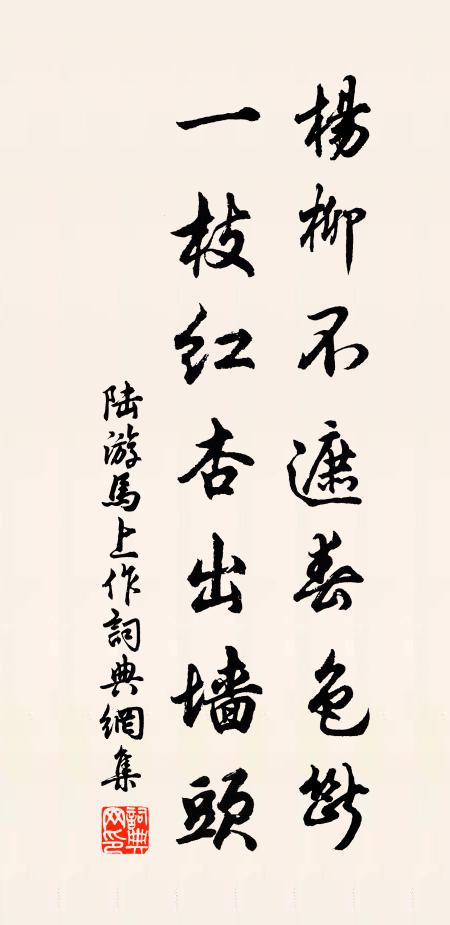 楊柳不遮春色斷
一枝紅杏出墻頭
陸游馬上作詞典網集
詞典網印